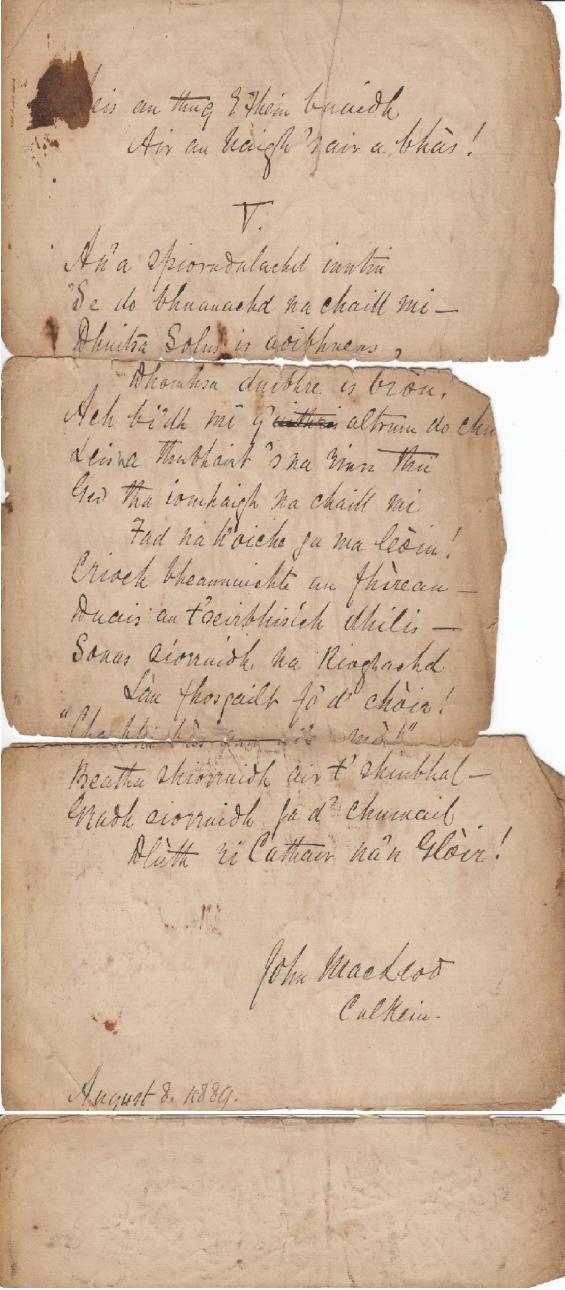 an thug E Fhein buaidh
Air an Uaigh 's air a bhàs!
V.
An 'a spioradalachd inntin
'Se do bhuanachd na chaill mi —
Dhuitsa Solus is aoibhneas,
Dhomhsa duibhre is bròn.
Ach bi'dh mi g' altrum do
Leis na thubhairt 's na rinn thu
Ged tha iomhaigh na chaill mi
Fad na h'oiche ga ma leòin!
Crioch bheannuichte an fhirean —
Duais an t'seirbhisich dhilis —
Sonas siorruidh na Rioghachd
Làn fhosgailt fo d' chòir!
Beatha shiorruidh air t' shiubhal —
Gradh siorruidh ga d' chumail
Dlùth ri Cathair na'n Glòir!
John MacLeod
Culkein.
August 8. 1889.